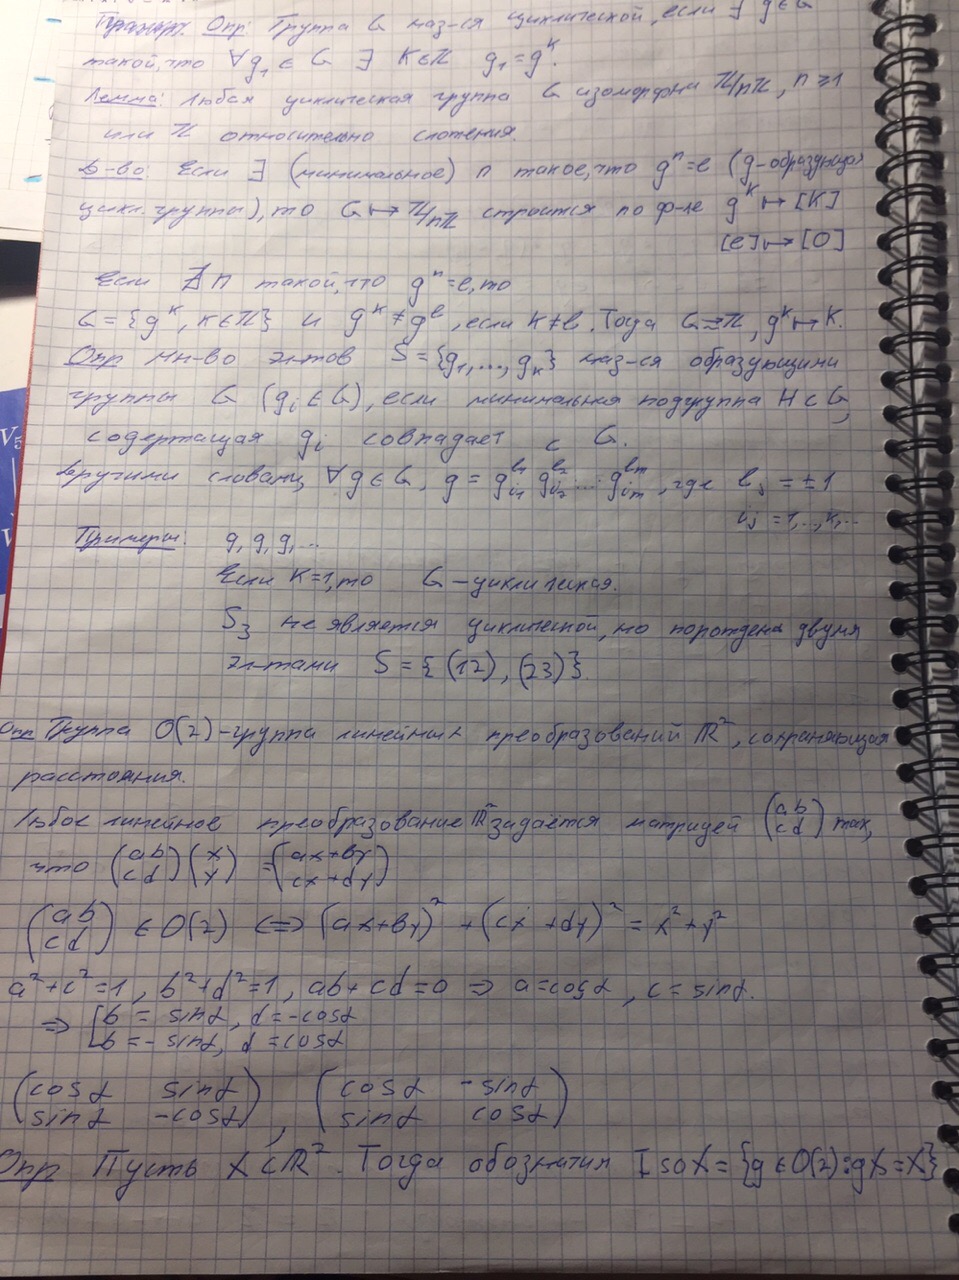 Опр: Группа G наз-ся циклической, если ∃ g∈G
такой, что ∀g₁ ∈ G ∃ k∈ℤ g₁=gᵏ.
Лемма: Любая циклическая группа G изоморфна ℤ/nℤ, n≥1
или ℤ относительно сложения.
Д-во: Если ∃ (минимальное) n такое, что gⁿ=e (g-образующая
цикл. группы), то G↦ℤ/nℤ строится по ф-ле gᵏ↦[k]
[e]↦[0]
Если ∄ n такой, что gⁿ=e, то
G={gᵏ, k∈ℤ} и gᵏ≠gˡ, если k≠l. Тогда G≅ℤ, gᵏ↦k.
Опр Мн-во эл-тов S={g₁,...,gₖ} наз-ся образующими
группы G (gᵢ∈G), если минимальная подгруппа H⊂G,
содержащая gᵢ совпадает с G.
Другими словами, ∀g∈G, g = gᵢ₁^l₁ gᵢ₂^l₂ ... gᵢₘ^lₘ, где lⱼ = ±1
iⱼ = 1,..,k,...
Примеры: g, g, g,...
Если k=1, то G – циклическая.
S₃ не является циклической, но порождена двумя
эл-тами S = {(12), (23)}.
Опр Группа O(2)-группа линейных преобразований ℝ², сохраняющая
расстояния.
Любое линейное преобразование ℝ² задается матрицей (a b; c d) так,
что (a b; c d)(x; y) = (ax+by; cx+dy)
(a b; c d) ∈ O(2) ⇔ (ax+by)² + (cx+dy)² = x²+y²
a²+c²=1, b²+d²=1, ab+cd=0 ⇒ a=cosα, c=sinα.
⇒ [b = sinα, d=-cosα
b = -sinα, d = cosα
(cosα sinα; sinα -cosα), (cosα -sinα; sinα cosα)
Опр Пусть X⊂ℝ². Тогда обозначим IsoX={g∈O(2):gX=X}